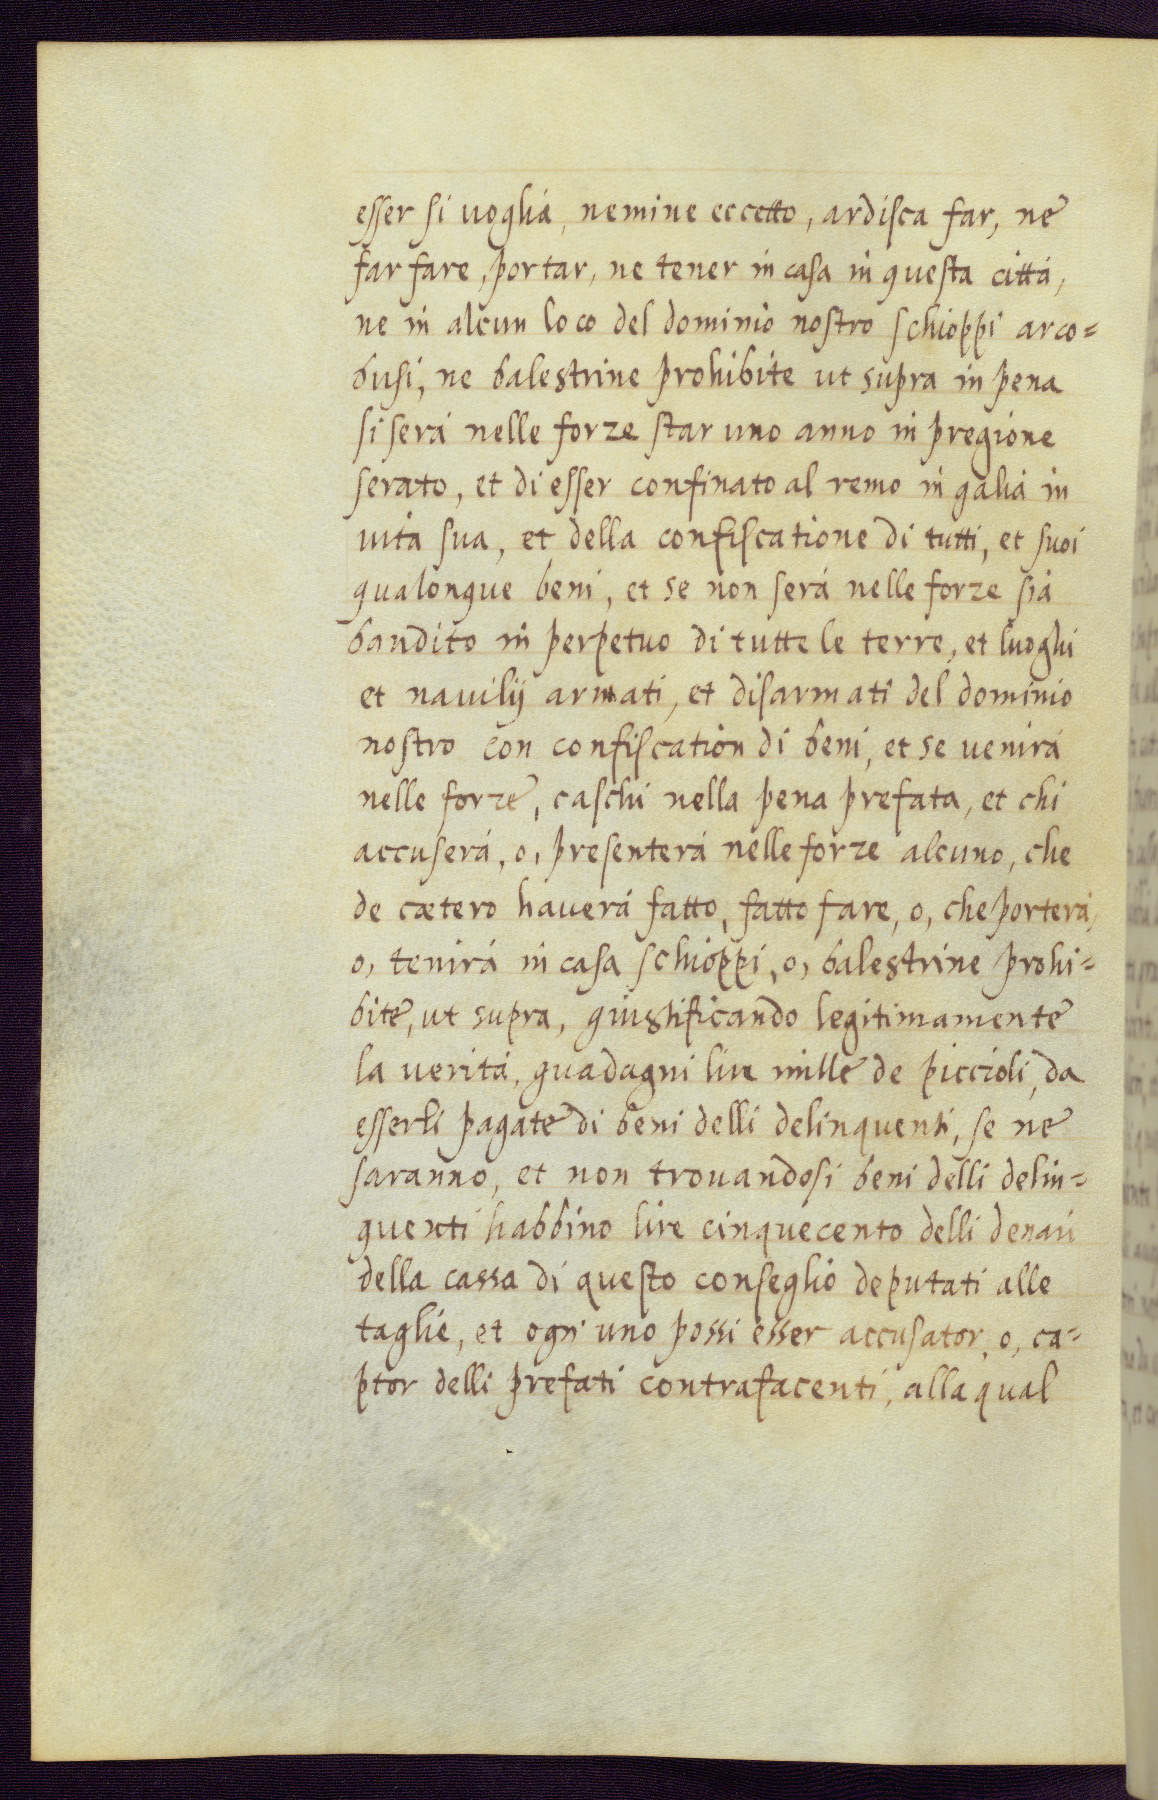 esser si uoglia, nemine eccetto, ardisca far, ne
far fare, portar, ne tener in casa in questa cittá,
ne in alcun loco del dominio nostro schioppi arco=
busi, ne balestrine prohibite ut supra in pena
si será nelle forze star uno anno in pregione
serato, et di esser confinato al remo in galia in
uita sua, et della confiscatione di tutti, et suoi
qualonque beni, et se non será nelle forze sia
bandito in perpetuo di tutte le terre, et luoghi
et nauilij armati, et disarmati del dominio
nostro con confiscation di beni, et se uenirá
nelle forze, caschi nella pena prefata, et chi
accuserá, o, presenterá nelle forze alcuno, che
de cætero hauerá fatto, fatto fare, o, che porterá,
o, tenirá in casa schioppi, o, balestrine prohi=
bite, ut supra, giustificando legitimamente
la ueritá, guadagni lire mille de piccioli, da
esserli pagate di beni delli delinquenti, se ne
saranno, et non trouandosi beni delli delin=
quenti habbino lire cinquecento delli denari
della cassa di questo conseglio deputati alle
taglie, et ogn' uno possi esser accusator, o, ca=
ptor delli prefati contrafacenti, alla qual